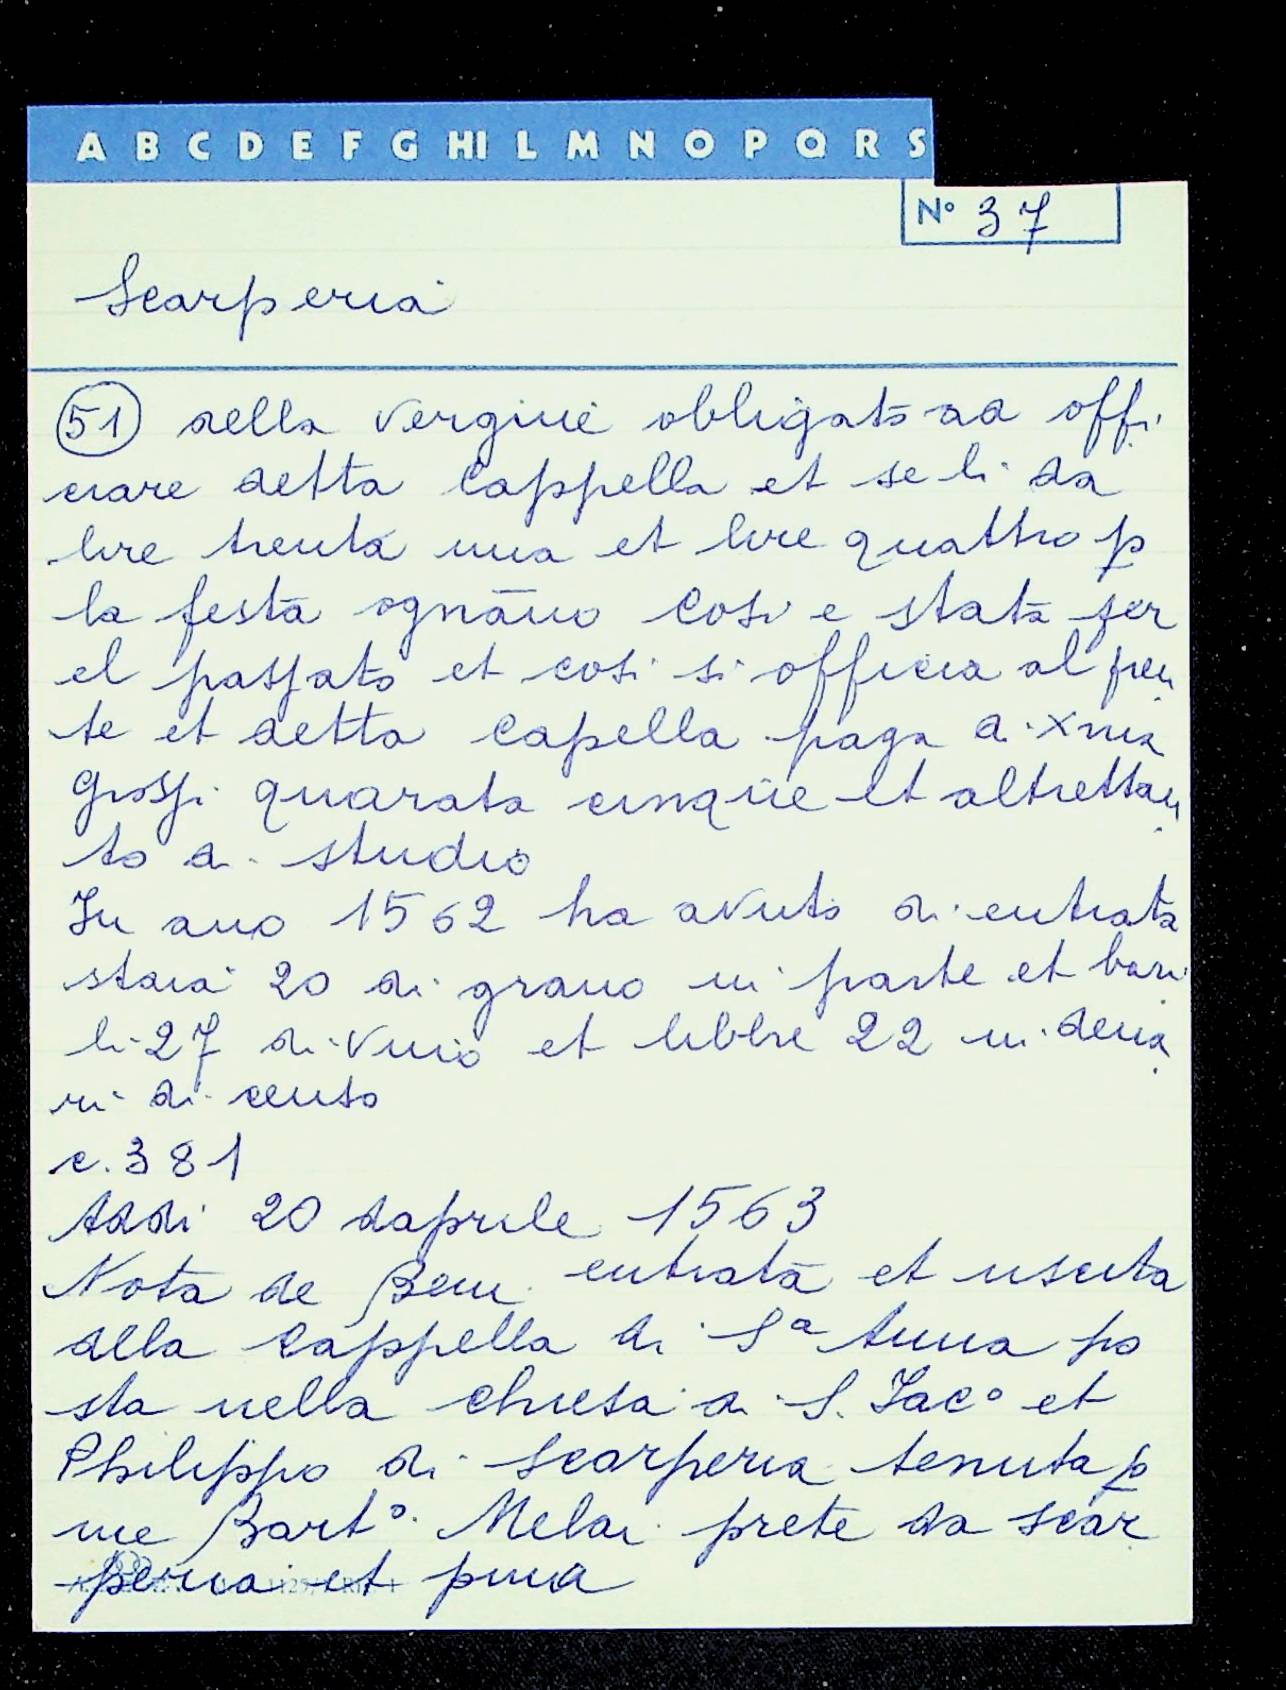 A B C D E F G HI L M N O P Q R S
N° 37
Scarperia
51 della vergine obligato ad offi
ciare detta cappella et se li da
lire trenta una et lire quattro p
la festa ognāno cosi e stata per
el passato et cosi si officia al pren
te et detta capella paga a. xma
grossi quarata cinque et altrettan
to a. studio
In ano 1562 ha avuto di entrata
staia 20 di grano in parte et bari
li 27 di vino et libbre 22 in dena
ri di censo
c. 381
Addi 20 daprile 1563
Nota de Beni entrata et uscita
della cappella di Sª Anna po
sta nella chiesa di S. Jac° et
Philippo di Scarperia tenuta p
me Bart° Melai prete da Scar
peria et pma